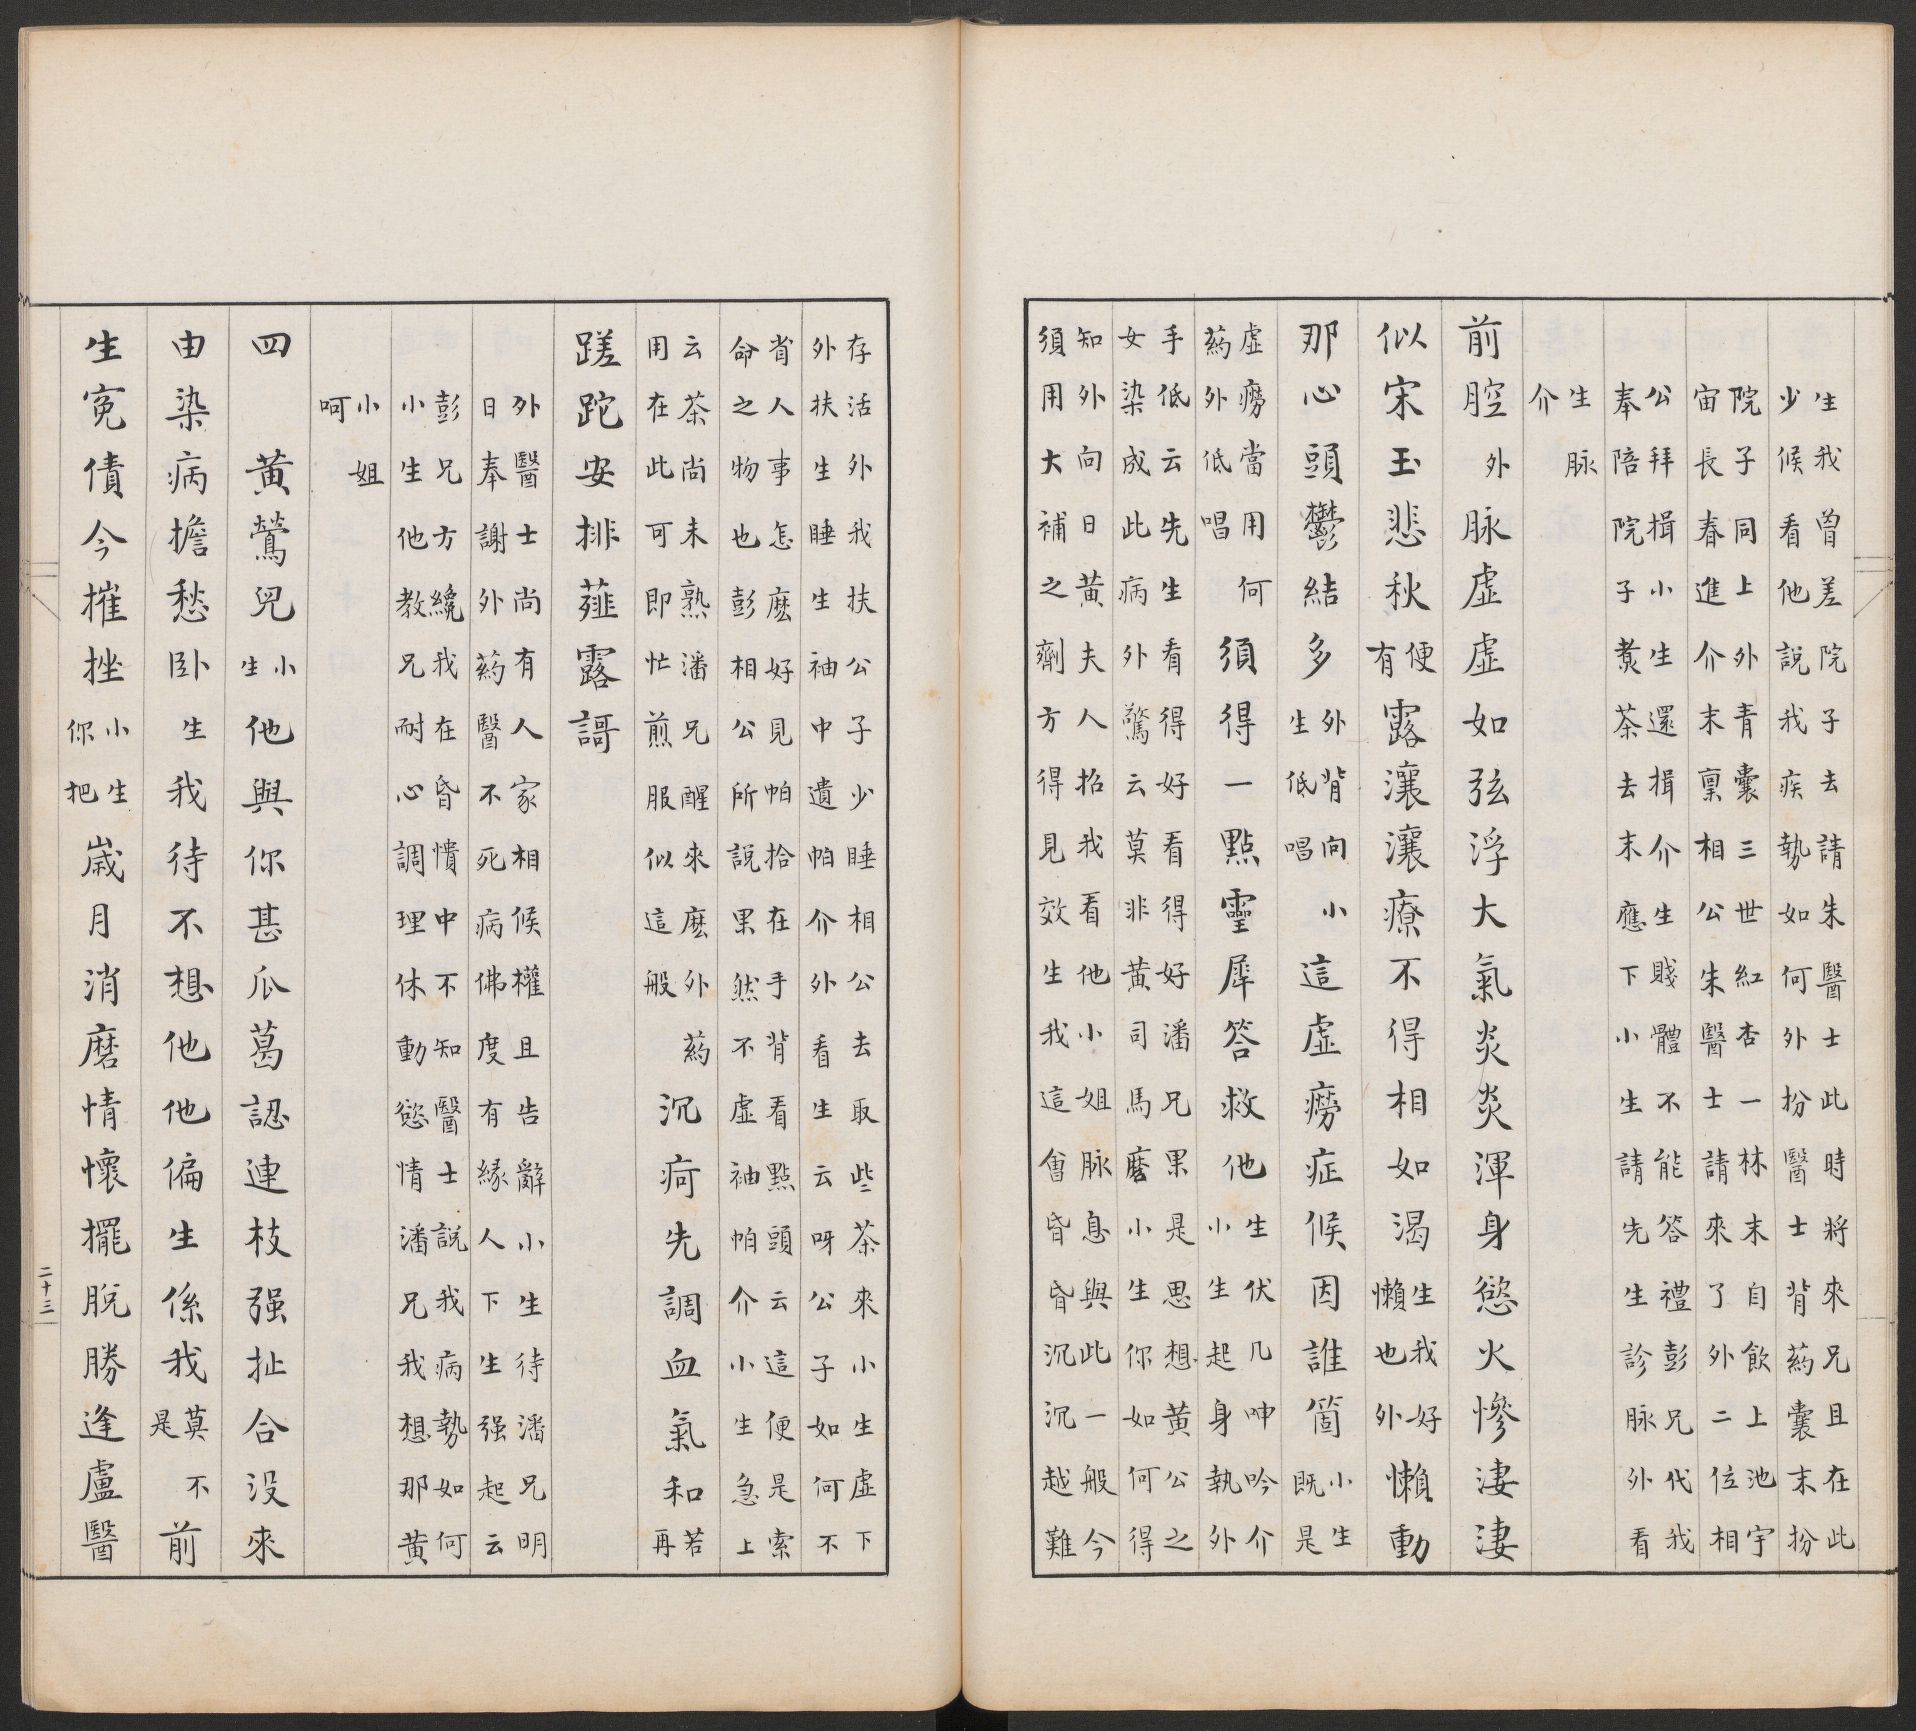 生我曾差院子去請朱醫士此時將來兄且在此
少候看他說我疾勢如何外扮醫士背葯囊末扮
院子同上外青囊三世紅杏一林末自飲上池宇
宙長春進介末稟相公朱醫士請來了外二位相
公拜揖小生還揖介生賤體不能答禮彭兄代我
奉陪院子煑茶去末應下小生請先生診脉外看
生脉
介
前腔外脉虛虛如弦浮大氣炎炎渾身慾火慘淒淒
似宋玉悲秋便有露瀼瀼療不得相如渴生我好懶也外懶動
那心頭鬱結多外背向生低唱小這虛癆症候因誰箇小生既是
虛癆當用何葯外低唱須得一點靈犀答救他生伏几呻吟介小生起身執外
手低云先生看得好看得好潘兄果是思想黃公之
女染成此病外驚云莫非黃司馬麽小生你如何得
知外向日黃夫人招我看他小姐脉息與此一般今
須用大補之劑方得見效生我這會昏昏沉沉越難
存活外我扶公子少睡相公去取些茶來小生虛下
外扶生睡生袖中遺帕介外看生云呀公子如何不
省人事怎麽好見帕拾在手背看點頭云這便是索
命之物也彭相公所說果然不虛袖帕介小生急上
云茶尚未熟潘兄醒來麽外葯
用在此可即忙煎服似這般沉疴先調血氣和若再
蹉跎安排薤露謌
外醫士尚有人家相候權且告辭小生待潘兄明
日奉謝外葯醫不死病佛度有緣人下生强起云
彭兄方纔我在昏憒中不知醫士說我病勢如何
小生他教兄耐心調理休動慾情潘兄我想那黃
小姐
呵
四黃鶯兒小生他與你甚瓜葛認連枝强扯合沒來
由染病擔愁卧生我待不想他他偏生係我莫不是前
生寃債今摧挫小生你把歲月消磨情懷擺脫勝逢盧醫
二十三